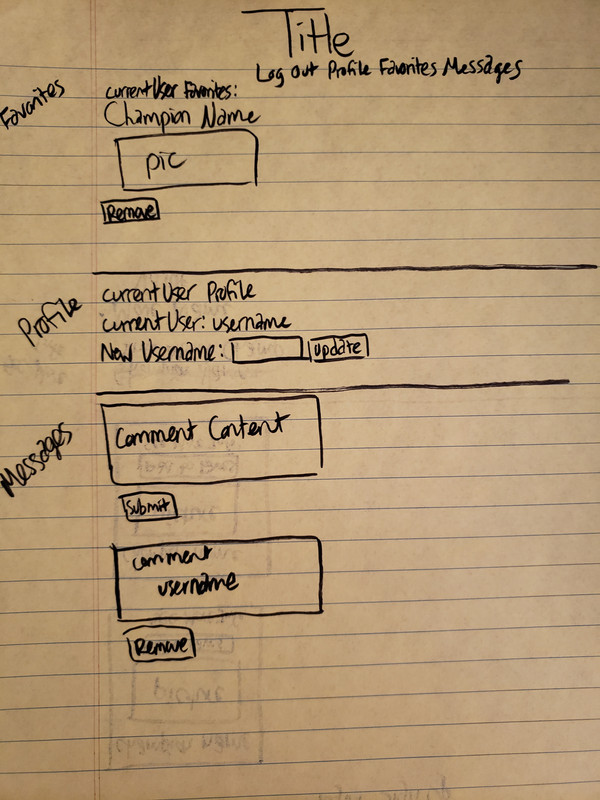 Title
Log Out Profile Favorites Messages
Favorites
currentUser Favorites:
Champion Name
pic
Remove
Profile
currentUser Profile
currentUser: username
New Username: update
Messages
Comment Content
Submit
comment
username
Remove